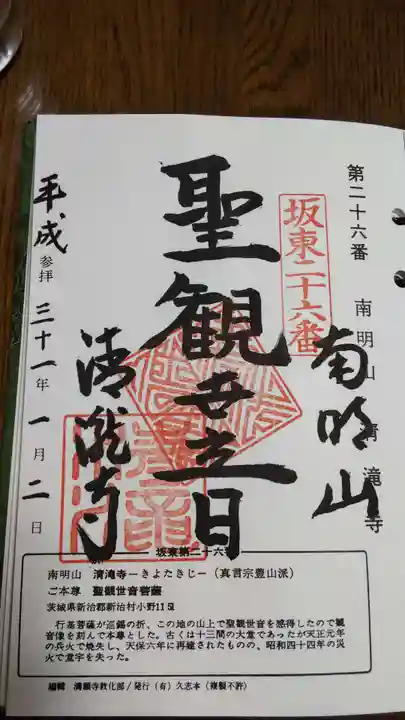 第二十六番 南明山 清滝寺
坂東二十六番
南明山
聖観音
清瀧寺
平成参拝三十一年一月二日
坂東第二十六番
南明山 清滝寺ーきよたきじー(真言宗豊山派)
ご本尊 聖観世音菩薩
茨城県新治郡新治村小野
行基菩薩が巡錫の折、この地の山上で聖観世音を感得したので観
音像を刻んで本尊とした。古くは十三間の大堂であったが天正元年
の兵火で焼失し、天保六年に再建されたものの、昭和四十四年の災
火で堂宇を失った。
編輯 満願寺教化部/発行(有)久志本(複製不許)